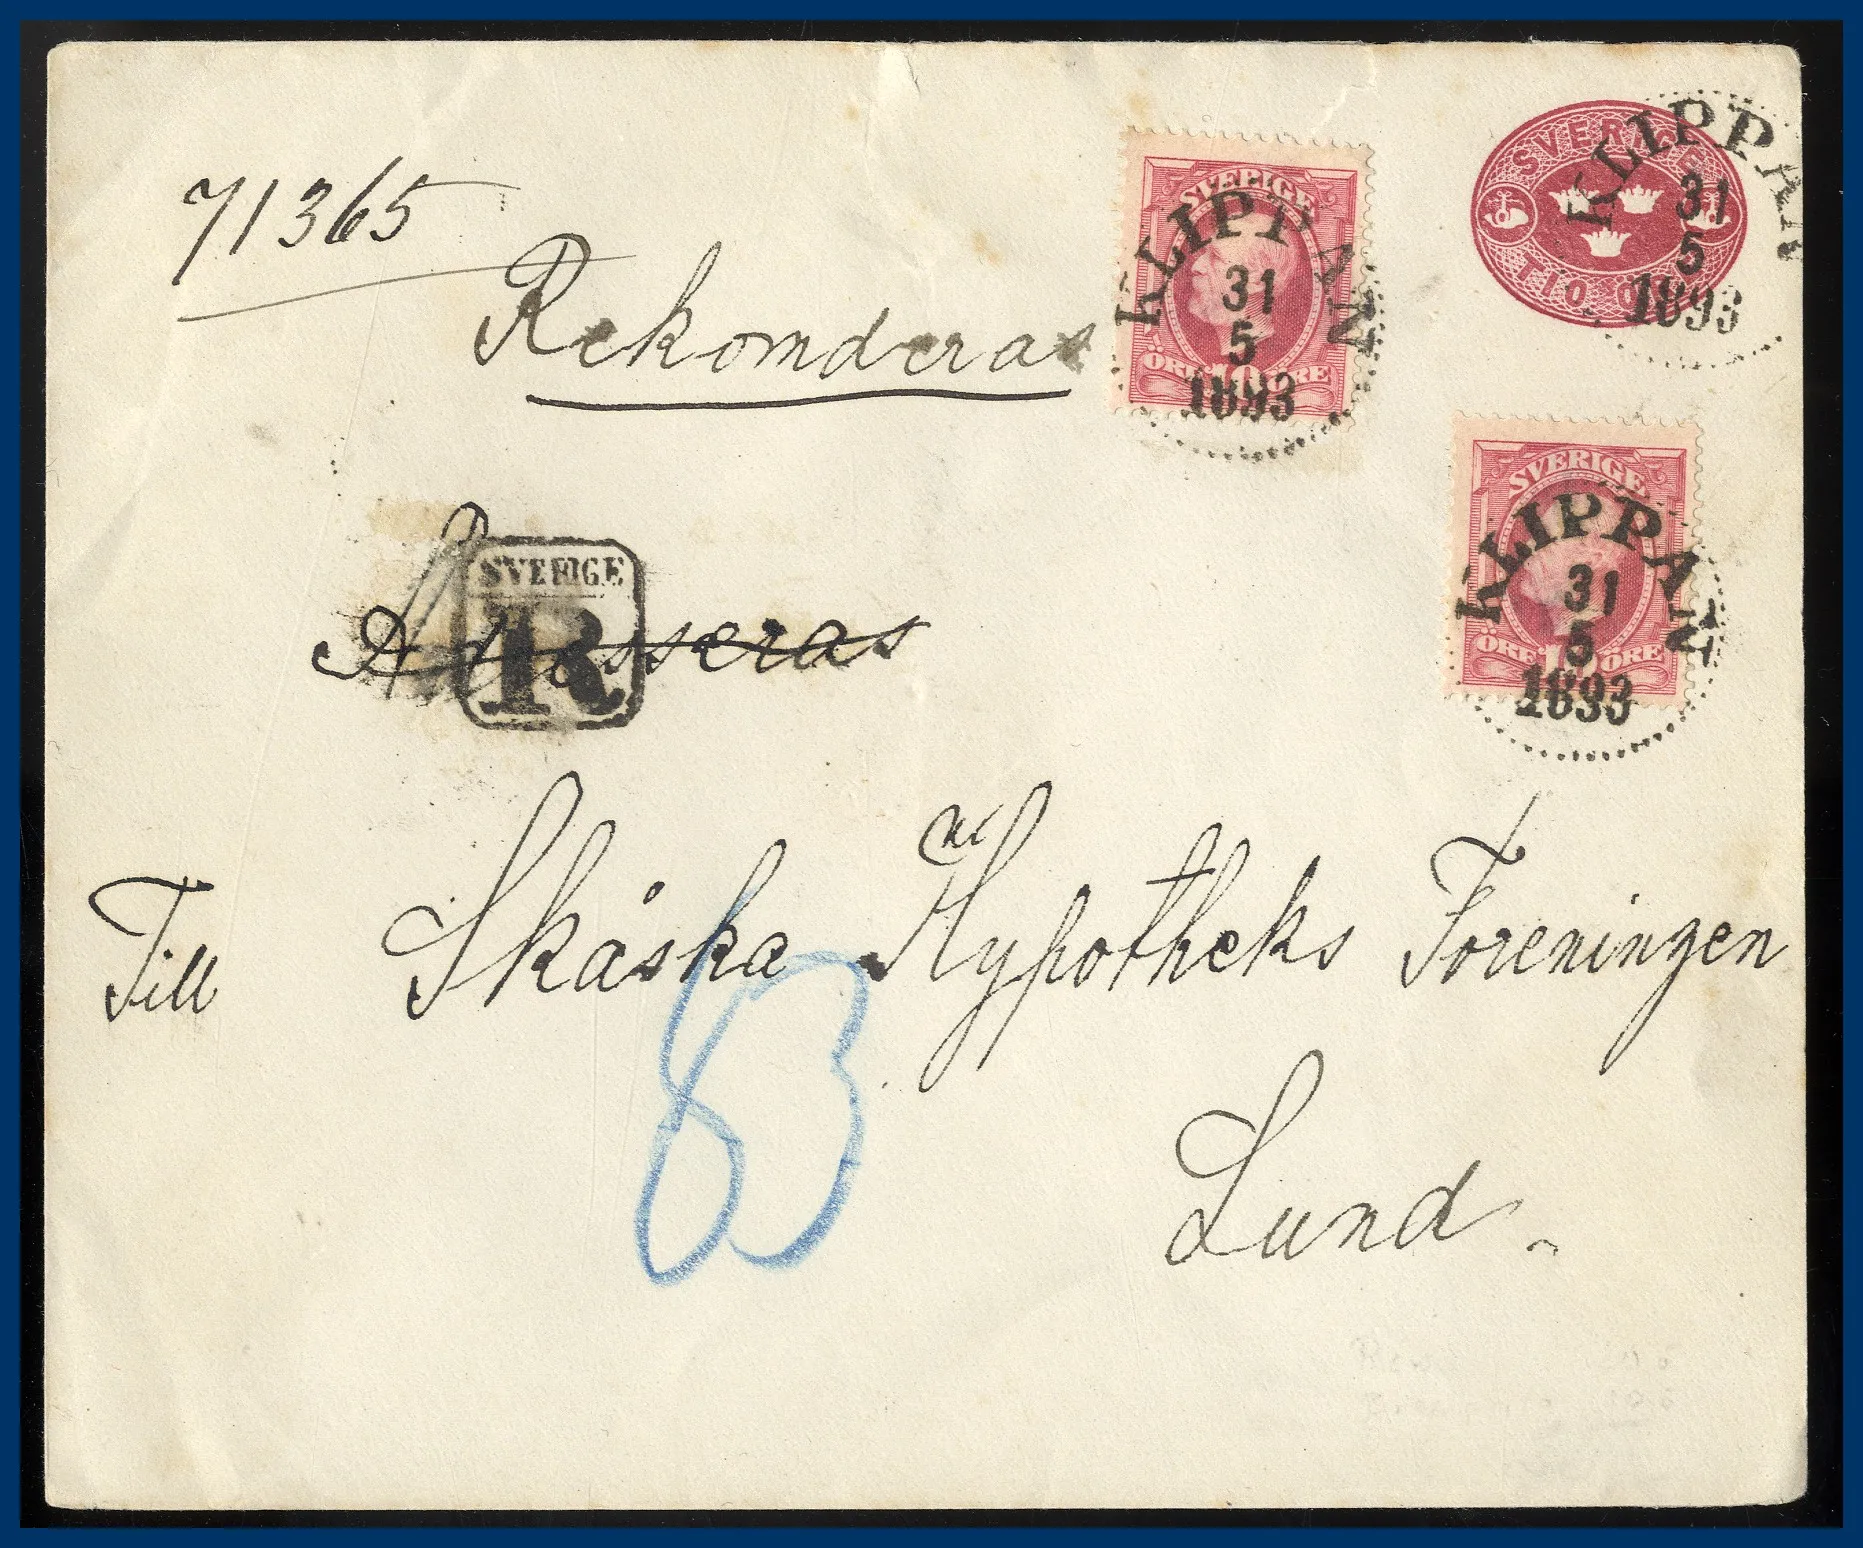 71365
Rekomderas
SVERIGE
R
Till Skåska Hypotheks Foreningen
Lund.
83
SVERIGE
ÖRE 10 ÖRE
KLIPPAN
31
5
1893
SVERIGE
TIO
KLIPPAN
31
5
1893
SVERIGE
ÖRE 10 ÖRE
KLIPPAN
31
5
1893